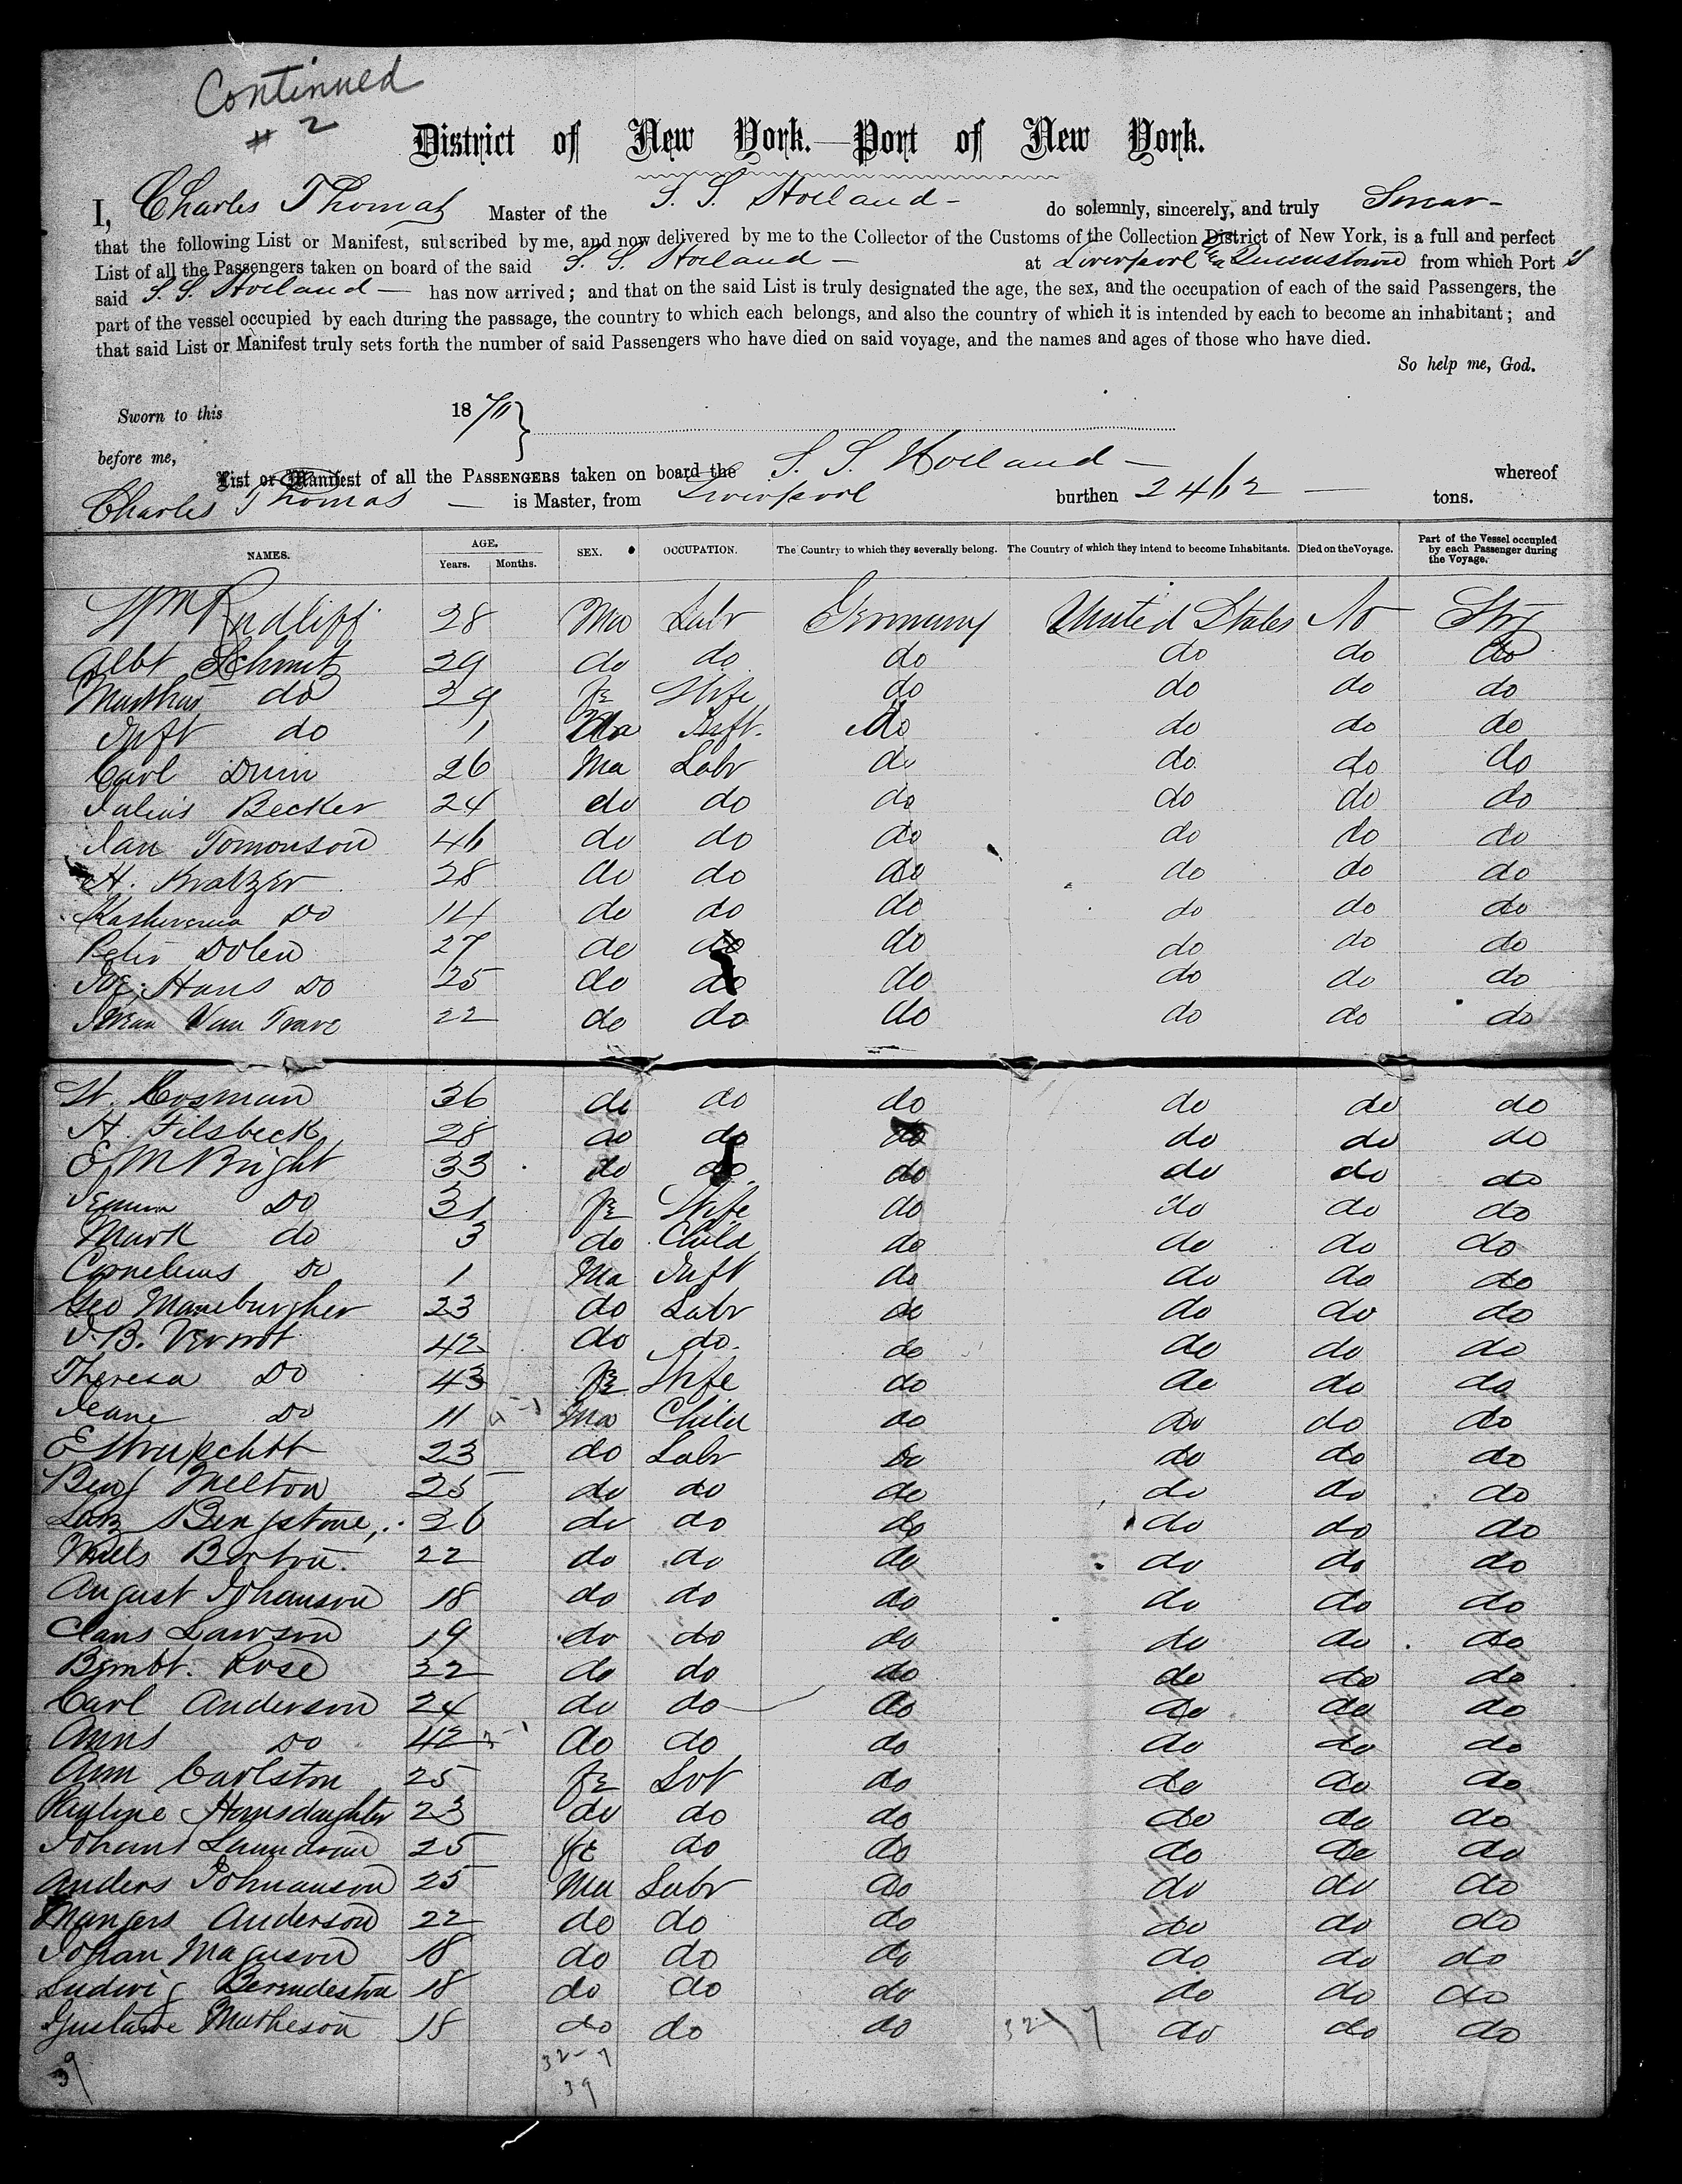 Continued
# 2
District of New York.—Port of New York.
I, Charles Thomas Master of the S. S. Holland - do solemnly, sincerely, and truly Swear -
that the following List or Manifest, subscribed by me, and now delivered by me to the Collector of the Customs of the Collection District of New York, is a full and perfect
List of all the Passengers taken on board of the said S. S. Holland - at Liverpool & Queenstown from which Port s
said S. S. Holland - has now arrived; and that on the said List is truly designated the age, the sex, and the occupation of each of the said Passengers, the
part of the vessel occupied by each during the passage, the country to which each belongs, and also the country of which it is intended by each to become an inhabitant; and
that said List or Manifest truly sets forth the number of said Passengers who have died on said voyage, and the names and ages of those who have died.
So help me, God.
Sworn to this 1870
before me,
List or Manifest of all the PASSENGERS taken on board the S. S. Holland - whereof
Charles Thomas - is Master, from Liverpool burthen 2462 - tons.
NAMES. AGE. Years. Months. SEX. OCCUPATION. The Country to which they severally belong. The Country of which they intend to become Inhabitants. Died on the Voyage. Part of the Vessel occupied by each Passenger during the Voyage.
Wm Rudliff 28 Ma Labr Germany United States No Strg
Albt Schmitz 29 do do do do do do
Marthas do 39 fe Wife do do do do
Inft do 1 Ma Inft. do do do do
Carl Duin 26 Ma Labr do do do do
Julius Becker 24 do do do do do do
Jan Tomonson 46 do do do do do do
H. Kratzer 28 do do do do do do
do 14 do do do do do do
Peter Dolen 27 do do do do do do
Hans Do 25 do do do do do do
Van Trave 22 do do do do do do
Cosman 36 do do do do do do
H. Filsbeck 28 do do do do do do
E M Bright 33 do do do do do do
Do 31 fe Wife do do do do
Mark do 3 do Child do do do do
Cornelius Do 1 Ma Inft do do do do
Geo Maneburgher 23 do Labr do do do do
J. B. Vernot 42 do do. do do do do
Theresa Do 43 fe Wife do do do do
Jeane Do 11 Ma Child do do do do
E 23 do Labr do do do do
Benj Melton 25 do do do do do do
Bengstone 26 do do do do do do
Nills Borton. 22 do do do do do do
August Johanson 18 do do do do do do
Clans Lawson 19 do do do do do do
Bernbt. Rose 22 do do do do do do
Carl Anderson 24 do do do do do do
Anns Do 42 do do do do do do
Ann Carlston 25 fe Svt do do do do
Pauline Hansdaughter 23 do do do do do do
Johann 25 fe do do do do do
Anders Johnanson 25 Ma Labr do do do do
Mangers Anderson 22 do do do do do do
Johan Maguson 18 do do do do do do
Ludwig Berndeston 18 do do do do do do
Gustave Matheson 18 do do do 32 7 do do do
32 - 7
39 39